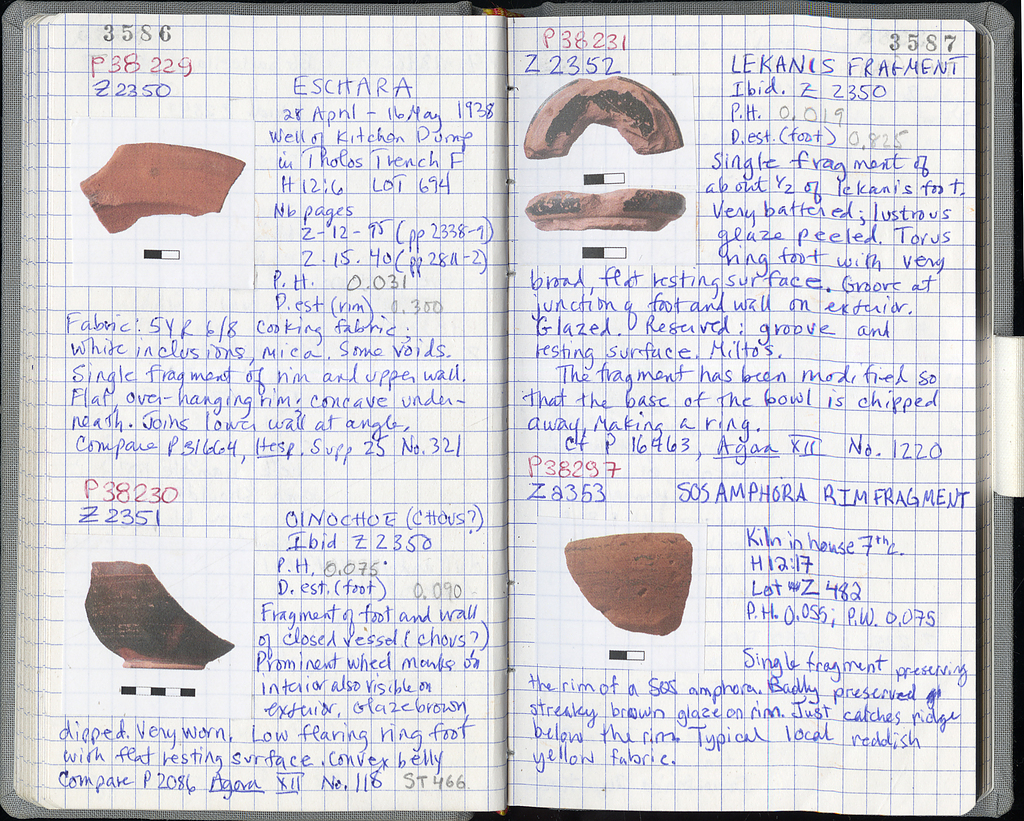 3586
P38229
Z2350
ESCHARA
28 April - 16 May 1938
Well of Kitchen Dump
in Tholos Trench F
H 12:6 LOT 694
Nb pages
Z-12-95 (pp 2338-9)
Z-15-40 (pp 2811-2)
P.H. 0.031
D. est (rim) 0.300
Fabric: 5YR 6/8 cooking fabric;
white inclusions, mica. Some voids.
Single fragment of rim and upper wall.
Flat, over-hanging rim; concave under-
neath. Joins lower wall at angle.
Compare P31664, Hesp. Supp 25 No. 321
P38230
Z2351
OINOCHOE (CHOUS?)
Ibid Z 2350
P.H. 0.075
D. est. (foot) 0.090
Fragment of foot and wall
of closed vessel (chous?)
Prominent wheel marks on
interior also visible on
exterior. Glaze brown,
dipped. Very worn. Low flaring ring foot
with flat resting surface. Convex belly
Compare P2086 Agora XII No. 118 ST466
3587
P38231
Z 2352
LEKANIS FRAGMENT
Ibid. Z 2350
P.H. 0.019
D. est. (foot) 0.825
Single fragment of
about ½ of lekanis foot.
Very battered; lustrous
glaze peeled. Torus
ring foot with very
broad, flat resting surface. Groove at
junction of foot and wall on exterior.
Glazed. Reserved: groove and
resting surface. Miltos.
The fragment has been modified so
that the base of the bowl is chipped
away, making a ring.
Cf P 16463, Agora XII No. 1220
P38297
Z2353
SOS AMPHORA RIM FRAGMENT
Kiln in house 7th c.
H12:17
Lot #Z 482
P.H. 0.055; P.W. 0.075
Single fragment preserving
the rim of a SOS amphora. Badly preserved
streaky brown glaze on rim. Just catches ridge
below the rim. Typical local reddish
yellow fabric.